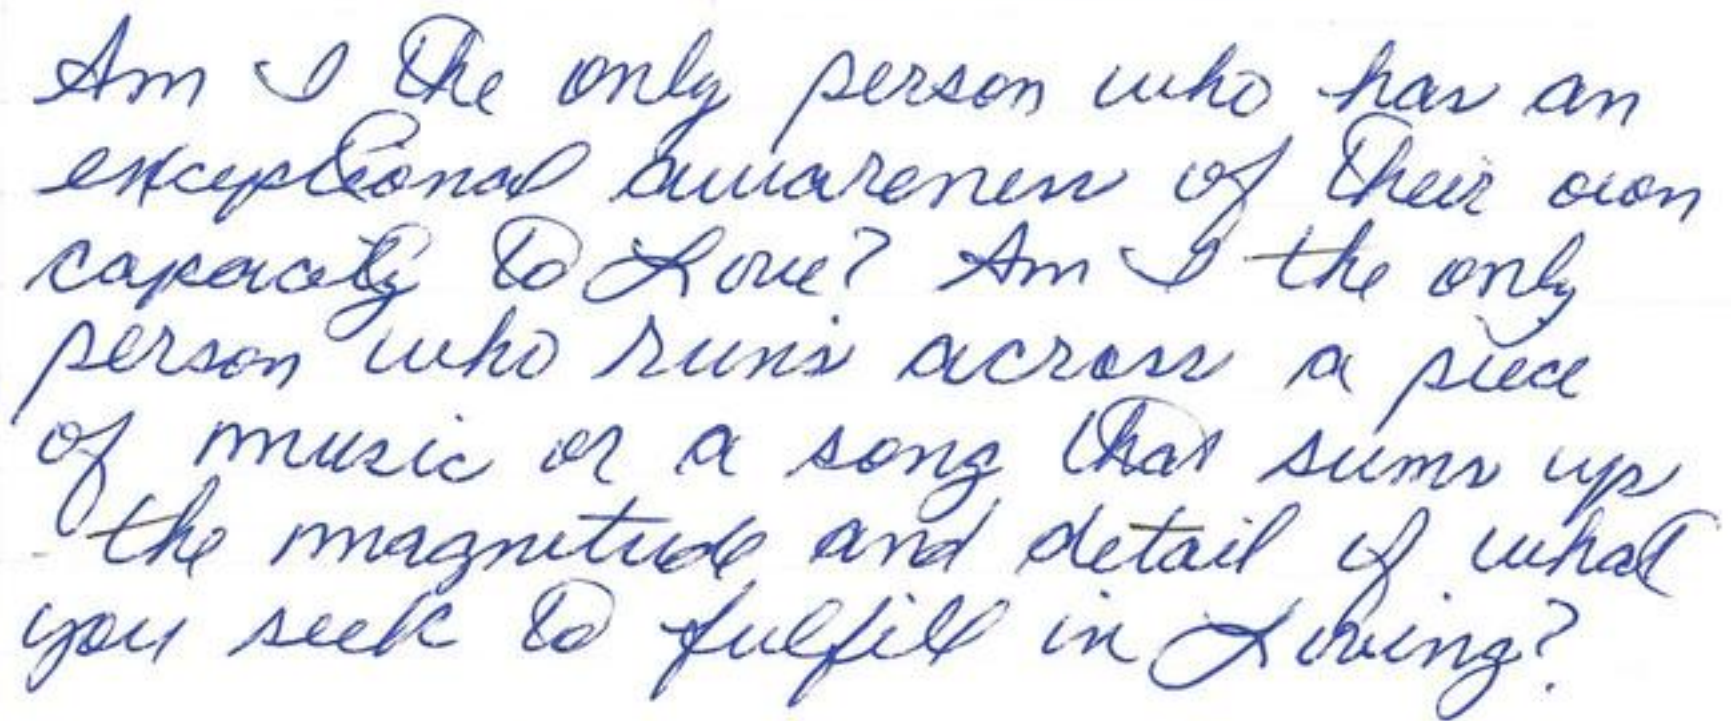 Am I the only person who has an
exceptional awareness of their own
capacity to Love? Am I the only
person who runs across a piece
of music or a song that sums up
the magnitude and detail of what
you seek to fulfill in Loving?